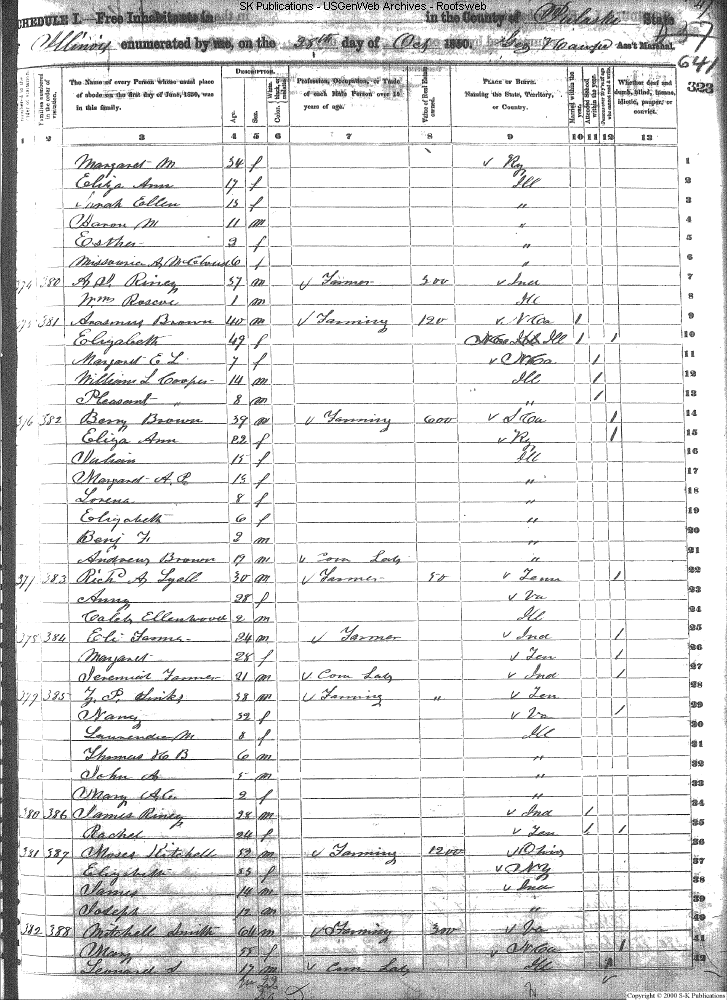 SK Publications - USGenWeb Archives - Rootsweb
SCHEDULE I.—Free Inhabitants in in the County of Pulaski State
of Illinois enumerated by me, on the 25th day of Oct 1850. Ass't Marshal.
641
323
DESCRIPTION.
The Name of every Person whose usual place of abode on the first day of June, 1850, was in this family.
Age. Sex. Color.
Profession, Occupation, or Trade of each Male Person over 15 years of age.
Value of Real Estate owned.
PLACE OF BIRTH. Naming the State, Territory, or Country.
Married within the year.
Whether deaf and dumb, blind, insane, idiotic, pauper, or convict.
1 2 3 4 5 6 7 8 9 10 11 12 13
Margaret M 34 f Ky 1
Eliza Ann 17 f Ill 2
Sarah Ellen 13 f " 3
Aaron M 11 m " 4
Esther 2 f " 5
6 f " 6
374 380 Riney 37 m Farmer 300 Ind 7
Wm Roscoe 1 m Ill 8
375 381 Brown 40 m Farming 120 N Ca 1 9
Elizabeth 49 f Ill 1 1 10
Margaret E L 7 f 1 11
William L Cooper 14 m Ill 1 12
Pleasant " 8 m " 1 13
376 382 Berry Brown 39 m Farming 600 S Ca 1 14
Eliza Ann f Ky 1 15
15 f Ill 16
Margaret A. 13 f " 17
Lorena 8 f " 18
Elizabeth 6 f " 19
Benj F. 2 m " 20
Brown 19 m Com Lab " 21
377 383 Richd A Lyell 30 m Farmer 50 Tenn 1 22
28 f Va 23
Caleb Ellenwood 2 m Ill 24
378 384 Eli Farmer 24 m Farmer Ind 1 25
Margaret 28 f Ten 1 26
Jeremiah Farmer 21 m Com Lab Ind 1 27
379 385 Z. P. Sinks 38 m Farming " Ten 28
Nancy 32 f Va 1 29
M 8 f Ill 30
Thomas H B 6 m " 31
John A 5 m " 32
Mary A.C. 2 f " 33
380 386 James Riney 28 m Ind 1 34
Rachel 24 f Ten 1 1 35
381 387 Moses Mitchell 52 m Farming 1200 Ohio 36
Elizabeth f N.Y. 37
James 14 m Ind 38
Joseph 12 m " 39
382 388 Mitchell Smith 64 m Farming 300 Va 40
Mary 58 f N Ca 1 41
Leonard S 17 m Com Lab Ill 42
Copyright © 2000 S-K Publications